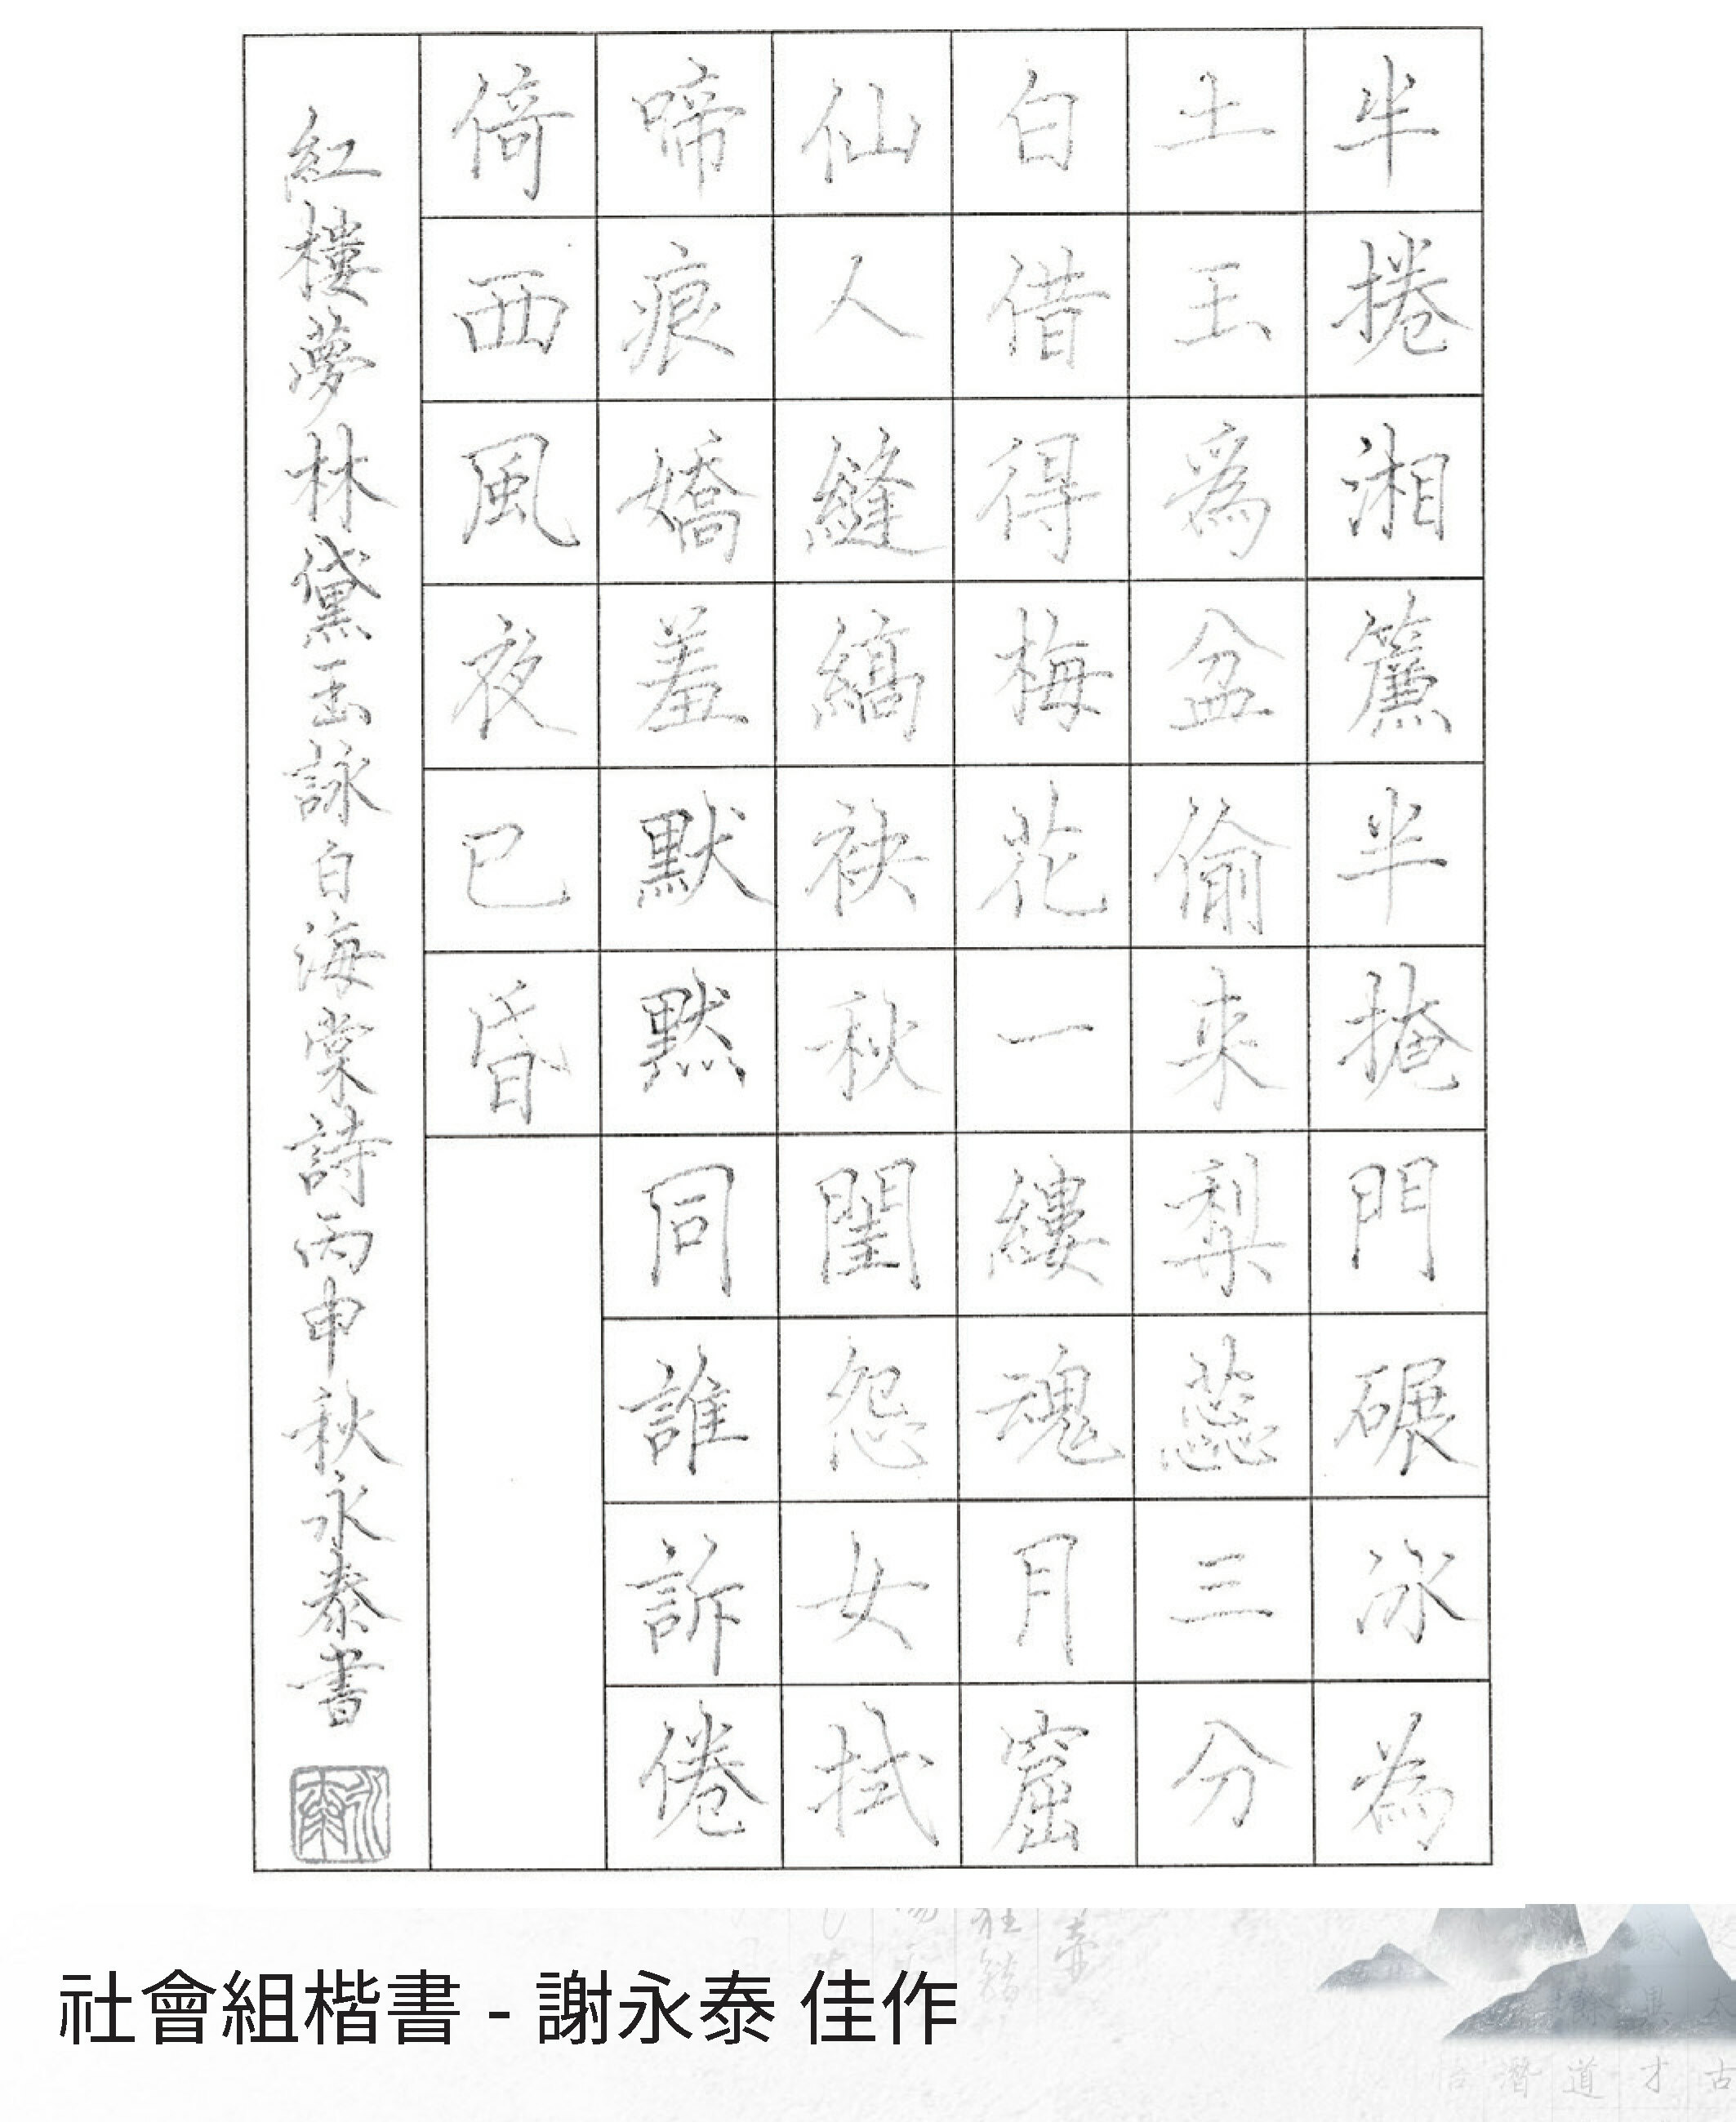 半捲湘簾半掩門碾冰為
土玉為盆偷來梨蕊三分
白借得梅花一縷魂月窟
仙人縫縞袂秋閨怨女拭
啼痕嬌羞默默同誰訴倦
倚西風夜已昏
紅樓夢林黛玉詠白海棠詩丙申秋永泰書
永泰
社會組楷書 - 謝永泰 佳作